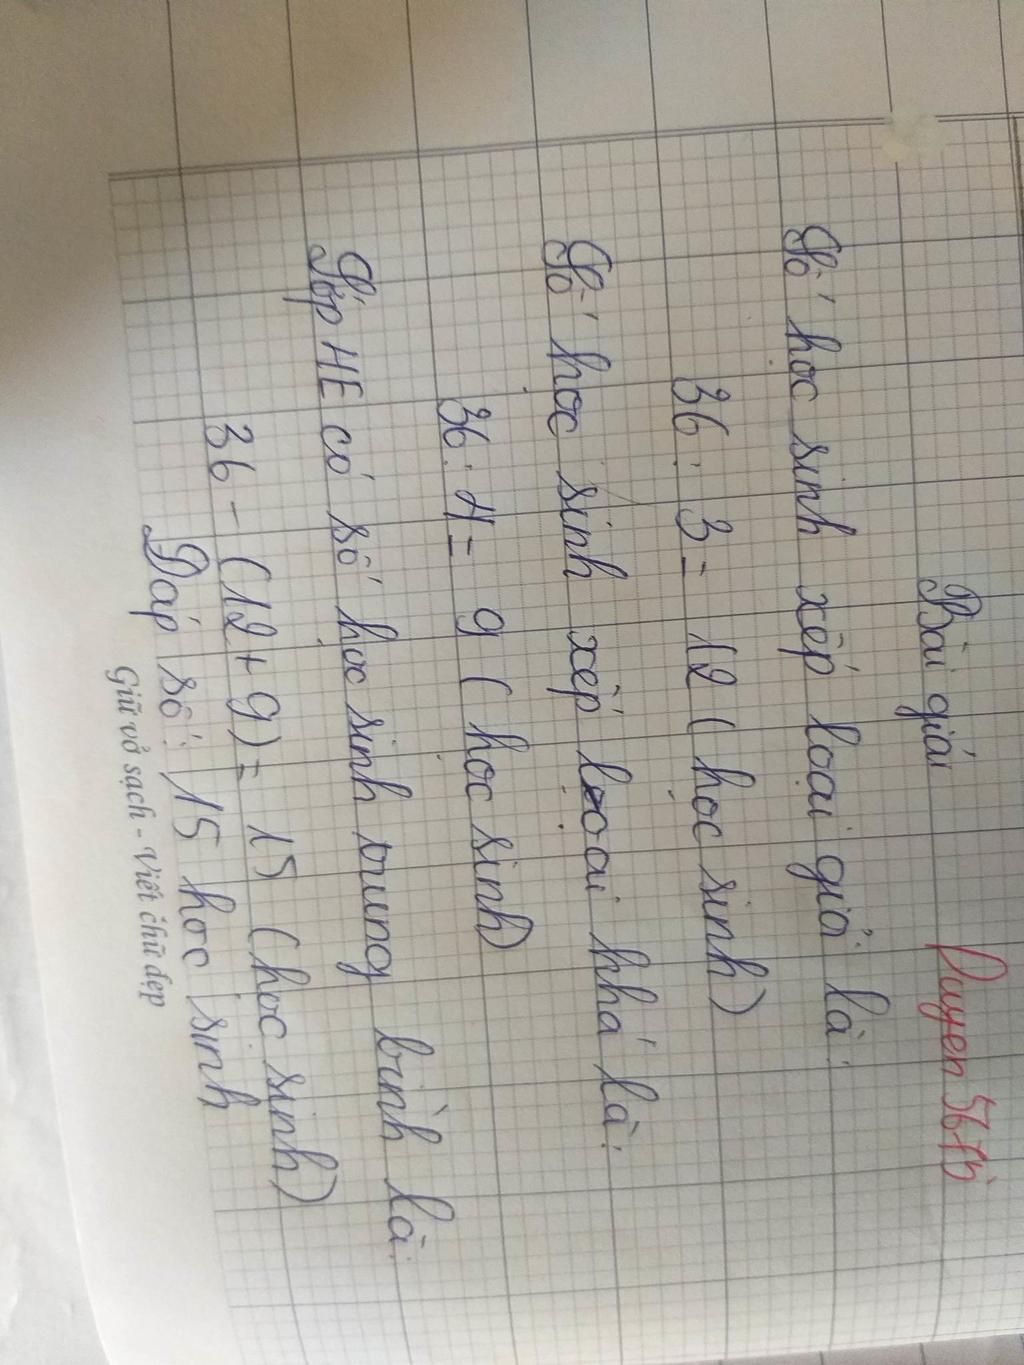 Bài giải Duyen 5675
Số học sinh xếp loại giỏi là:
36 : 3 = 12 ( học sinh)
Số học sinh xếp loại khá là:
36 : 4 = 9 ( học sinh)
Lớp 4E có số học sinh trung bình là:
36 - (12 + 9) = 15 ( học sinh)
Đáp số: 15 học sinh
Giữ vở sạch - Viết chữ đẹp